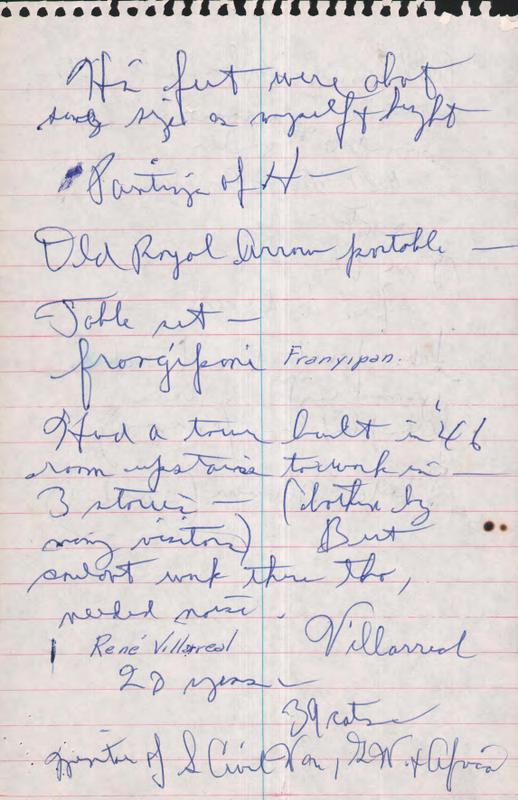 His feet were abot
same size as myself & hight
Paintings of H —
Old Royal Arrow portable —
Table set —
frangiponi Franyipan.
Had a tower built in '46
room upstairs to work in —
3 stories — (bother by
many visitors) But
couldnt work there tho,
needed noise.
René Villarreal Villarreal
20 years —
39 cats —
of S Civil War, & Africa